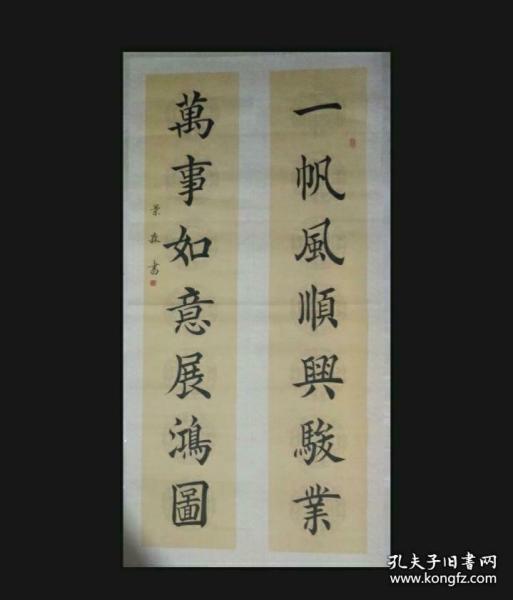 一帆風順興駿業
萬事如意展鴻圖
孔夫子旧书网
www.kongfz.com